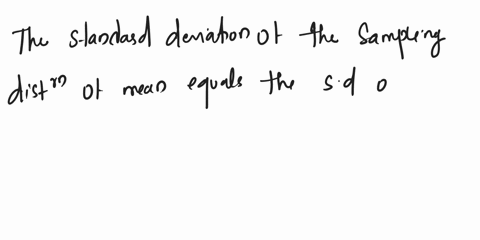 The standard deviation of the Sampling
distⁿ of mean equals the s.d o